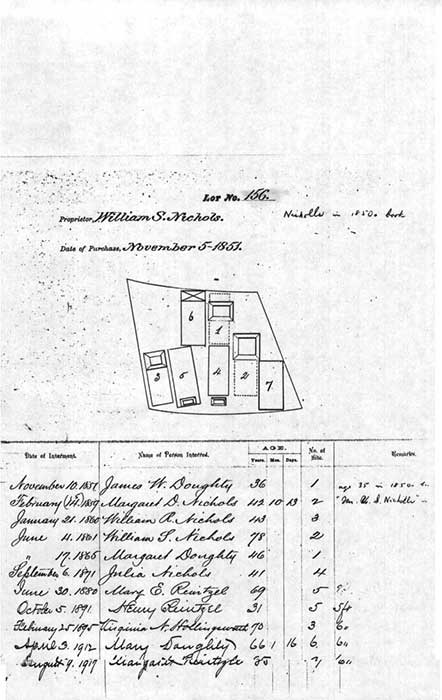 Lot No. 156.
Proprietor, William S. Nichols. Nicholls in 1850s book
Date of Purchase, November 5-1851.
6
1
3
5
4
2
7
Date of Interment. Name of Person Interred. AGE. No. of Site. Remarks.
Years. Mos. Days.
November 10. James W. Doughty 36 1 age 35 in 1850s
February Margaret D. Nichols 42 10 13 2
January 21. 1860 William R. Nichols 43 3
June 4. William S. Nichols 78 2
" 17. 1865 Margaret Doughty 46 1
September 6. 1871 Julia Nichols 41 4
June 30. 1880 Mary E. Reintzel 69 5
October 5. 1891 Henry Reintzel 31 5 5ft
February 25 1895 Virginia N. Hollingsworth 70 3 6"
April 3. 1912 Mary Doughty 66 1 16 6. 6"
August 9. 1917 Margaret 7 6"